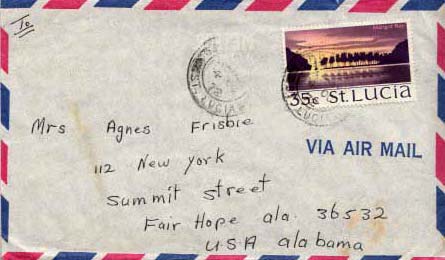 To
Marigot Bay
35c St. Lucia
ST. LUCIA
VIA AIR MAIL
Mrs Agnes Frisbie
112 New York
Summit Street
Fair Hope ala. 36532
USA alabama